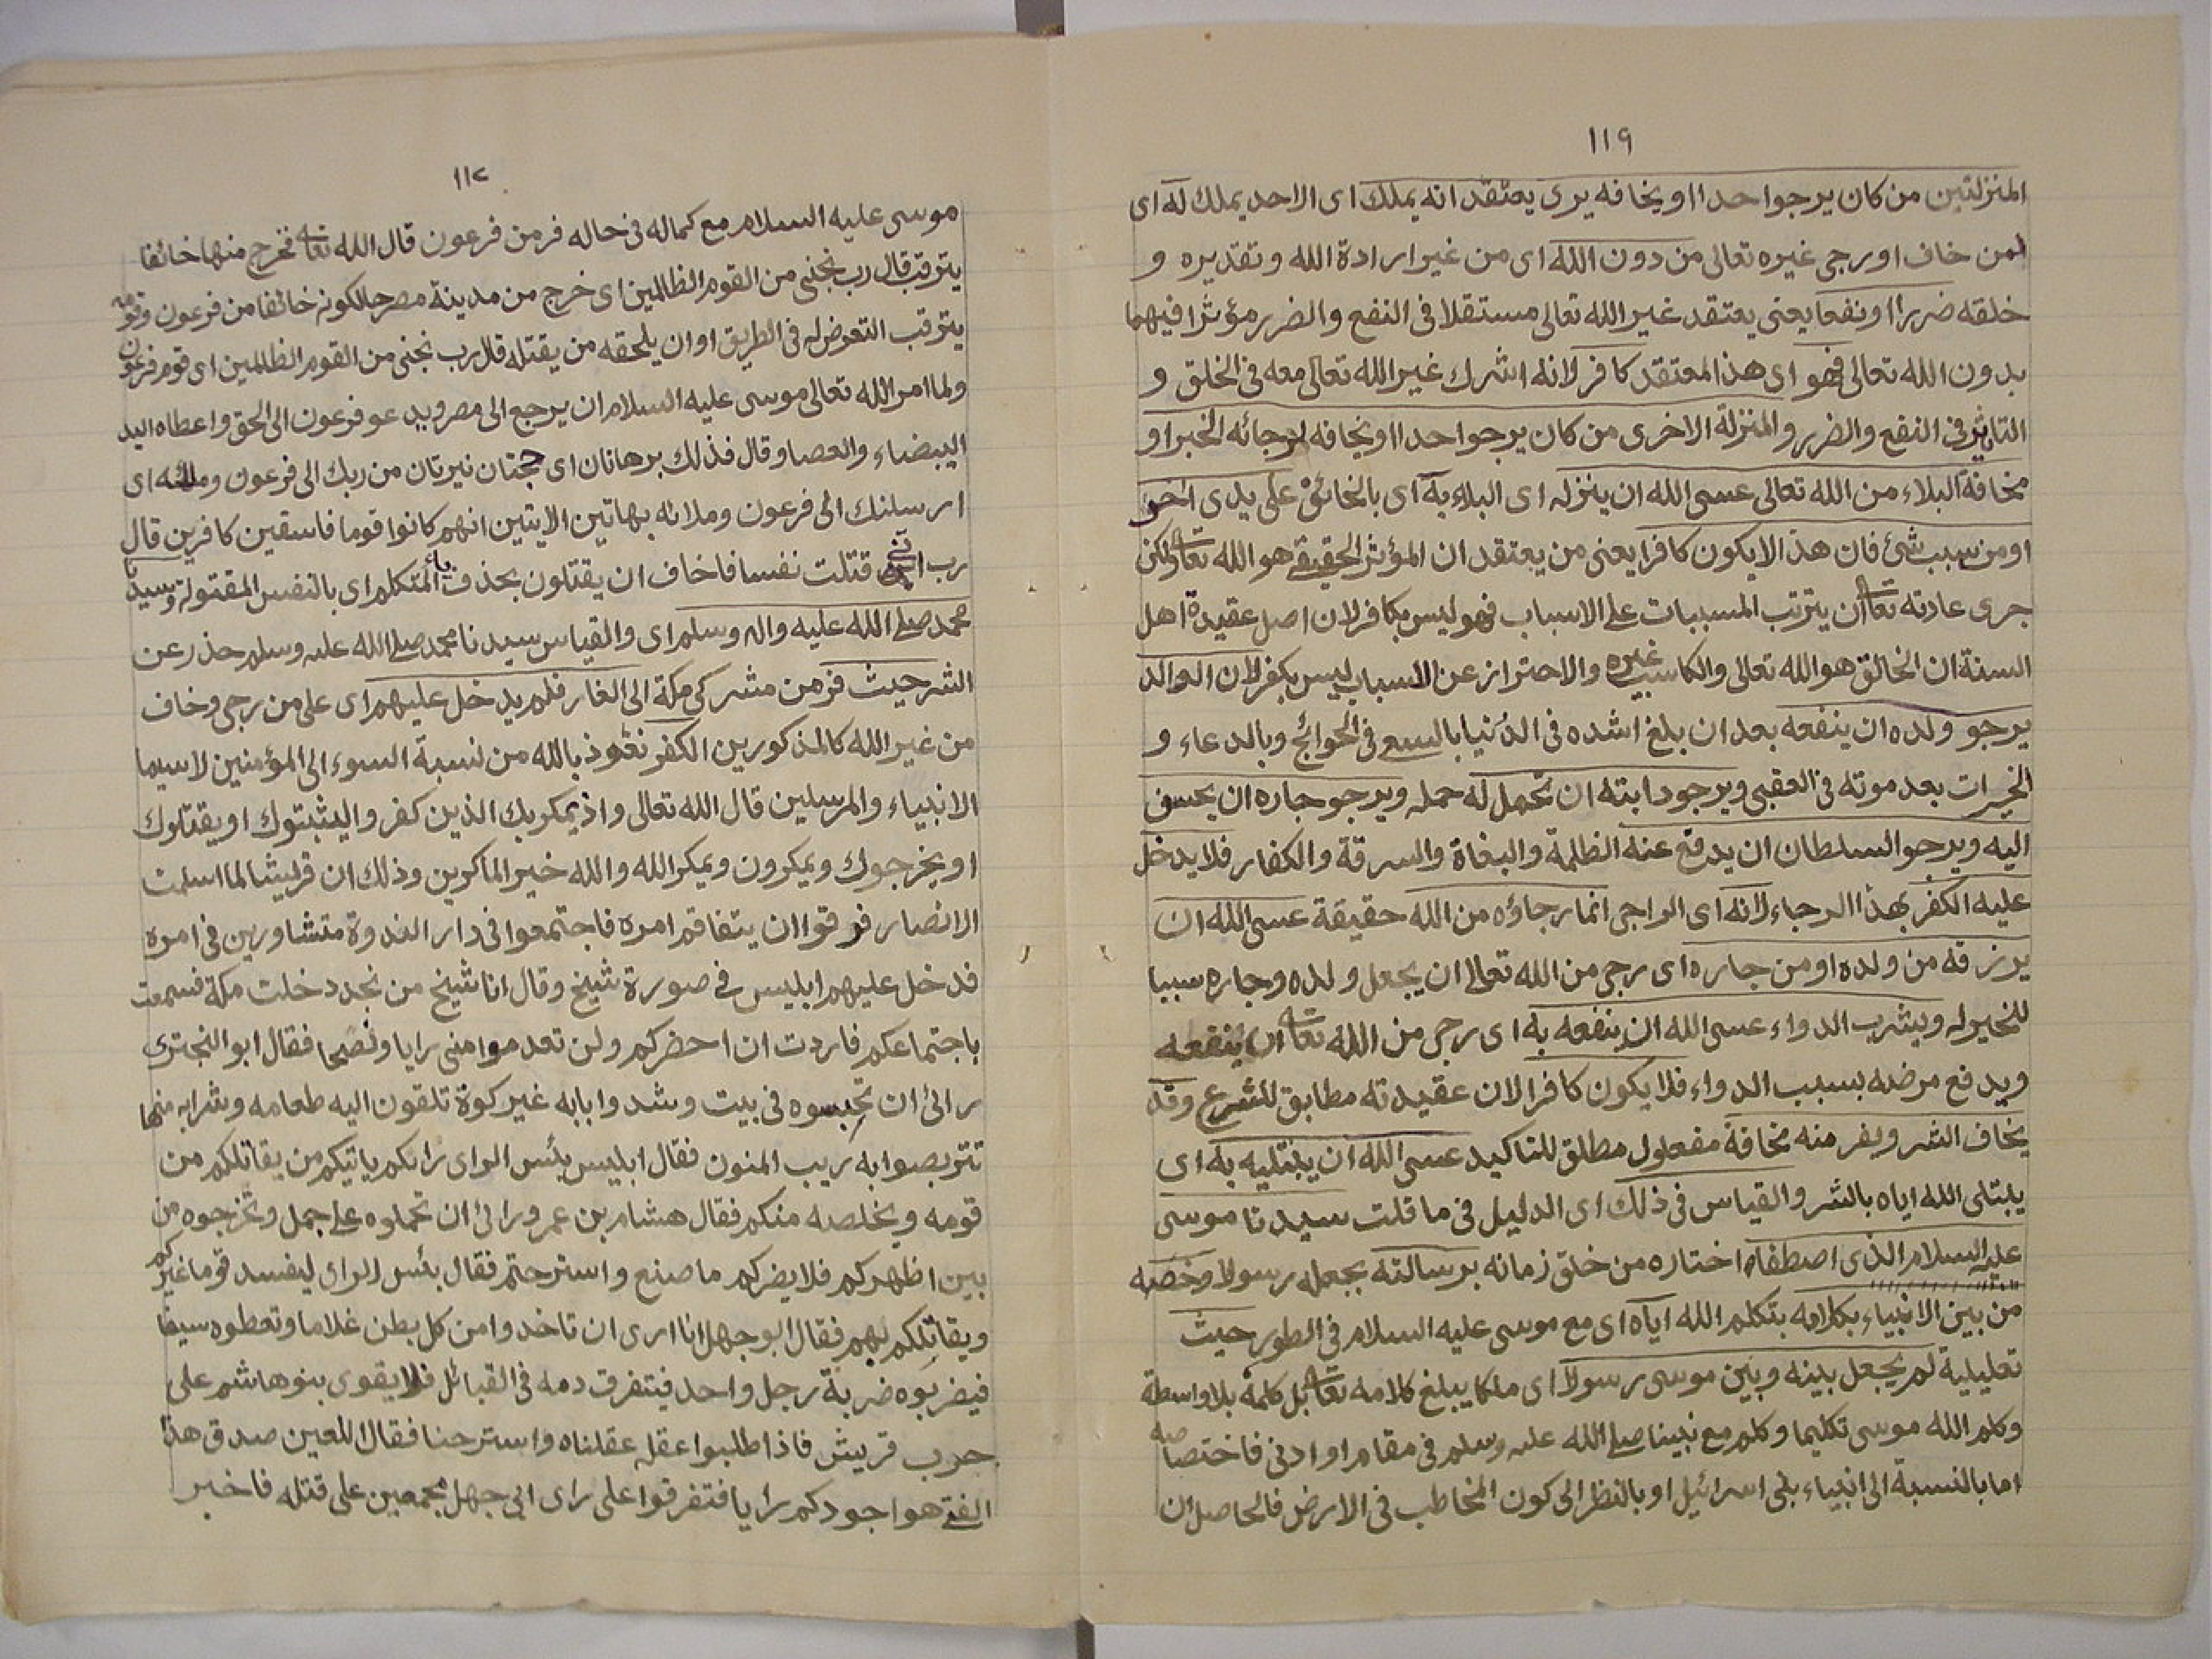 ١١٩
المنزلتين من كان يرجوا احدا او يخافه يرى يعتقد انه يملك اى الاحد يملك له اى
لمن خاف او رجى غيره تعالى من دون الله اى من غير ارادة الله وتقديره و
خلقه ضررا او نفعا يعنى يعتقد غير الله تعالى مستقلا فى النفع والضرر مؤثرا فيهما
بدون الله تعالى فهو اى هذا المعتقد كافر لانه اشرك غير الله تعالى معه فى الخلق و
التاثير فى النفع والضرر والمنزلة الاخرى من كان يرجوا احدا او يخافه لرجائه الخير او
مخافة البلاء من الله تعالى عسى الله ان ينزله اى البلاء به اى بالخائف على يدى اخر
او من سبب شئ فان هذا لا يكون كافرا يعنى من يعتقد ان المؤثر الحقيقى هو الله تعا ولكن
جرى عادته تعا ان يترتب المسببات على الاسباب فهو ليس بكافر لان اصل عقيدة اهل
السنة ان الخالق هو الله تعالى والكاسب غيره والاحتراز عن الاسباب ليس بكفر لان الوالد
يرجو ولده ان ينفعه بعد ان بلغ اشده فى الدنيا بالسعى فى الحوائج وبالدعاء و
الخيرات بعد موته فى العقبى ويرجو دابته ان تحمل له حمله ويرجو جاره ان يحسن
اليه ويرجو السلطان ان يدفع عنه الظلمة والبغاة والسرقة والكفار فلا يدخل
عليه الكفر بهذا الرجاء لانه اى الراجى انما رجاؤه من الله حقيقة عسى الله ان
يرزقه من ولده او من جاره اى رجى من الله تعالى ان يجعل ولده وجاره سببا
للخير له ويشرب الدواء عسى الله ان ينفعه به اى رجى من الله تعا ان ينفعه
ويدفع مرضه بسبب الدواء فلا يكون كافرا لان عقيدته مطابق للشرع وقد
يخاف الشر ويفر منه مخافة مفعول مطلق للتاكيد عسى الله ان يبتليه به اى
يبتلى الله اياه بالشر والقياس فى ذلك اى الدليل فى ما قلت سيدنا موسى
عليه السلام الذى اصطفاه اختاره من خلق زمانه برسالته بجعله رسولا وخصه
من بين الانبياء بكلامه بتكلم الله اياه اى مع موسى عليه السلام فى الطور حيث
تعليلية لم يجعل بينه وبين موسى رسولا اى ملكا يبلغ كلامه تعا بل كلمه بلا واسطة
وكلم الله موسى تكليما وكلم مع نبينا صلى الله عليه وسلم فى مقام او ادنى فاختصاصه
اما بالنسبة الى انبياء بنى اسرائيل او بالنظر الى كون المخاطب فى الارض فالحاصل ان
موسى عليه السلام مع كماله فى حاله فر من فرعون قال الله تعا فخرج منها خائفا
يترقب قال رب نجنى من القوم الظالمين اى خرج من مدينة مصر حالكونه خائفا من فرعون وقومه
يترقب التعرض له فى الطريق او ان يلحقه من يقتله قال رب نجنى من القوم الظالمين اى قوم فرعون
ولما امر الله تعالى موسى عليه السلام ان يرجع الى مصر ويدعو فرعون الى الحق واعطاه اليد
البيضاء والعصا وقال فذلك برهانان اى حجتان نيرتان من ربك الى فرعون وملئه اى
ارسلنك الى فرعون وملائه بهاتين الايتين انهم كانوا قوما فاسقين كافرين قال
رب انى قتلت نفسا فاخاف ان يقتلون بحذف ياء المتكلم اى بالنفس المقتولة وسيدنا
محمد صلى الله عليه واله وسلم اى والقياس سيدنا محمد صلى الله عليه وسلم حذر عن
الشر حيث فر من مشركى مكة الى الغار فلم يدخل عليهم اى على من رجى وخاف
من غير الله كالمذكورين الكفر نعوذ بالله من نسبة السوء الى المؤمنين لاسيما
الانبياء والمرسلين قال الله تعالى واذ يمكر بك الذين كفروا ليثبتوك او يقتلوك
او يخرجوك ويمكرون ويمكر الله والله خير الماكرين وذلك ان قريشا لما اسلمت
الانصار فرقوا ان يتفاقم امره فاجتمعوا فى دار الندوة متشاورين فى امره
فدخل عليهم ابليس فى صورة شيخ وقال انا شيخ من نجد دخلت مكة فسمعت
باجتماعكم فاردت ان احضركم ولن تعدموا منى رايا ونصحا فقال ابو البخترى
رائى ان تحبسوه فى بيت وشدوا بابه غير كوة تلقون اليه طعامه وشرابه منها
تتربصوا به ريب المنون فقال ابليس بئس الراى رايكم ياتيكم من يقاتلكم من
قومه ويخلصه منكم فقال هشام بن عمرو رائى ان تحملوه على جمل وتخرجوه من
بين اظهركم فلا يضركم ما صنع واسترحتم فقال بئس الراى ليفسد قوما غيركم
ويقاتلكم بهم فقال ابو جهل انا ارى ان تاخدوا من كل بطن غلاما وتعطوه سيفا
فيضربوه ضربة رجل واحد فيتفرق دمه فى القبائل فلا يقوى بنو هاشم على
حرب قريش فاذا طلبوا عقله عقلناه واسترحنا فقال اللعين صدق هذا
الفتى هو اجودكم رايا فتفرقوا على راى ابى جهل مجمعين على قتله فاخبر